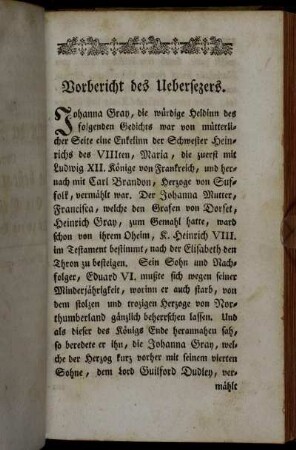 Vorbericht des Uebersezers.
Johanna Gray, die würdige Heldinn des
folgenden Gedichts war von mütterli-
cher Seite eine Enkelinn der Schwester Hein-
richs des VIIIten, Maria, die zuerst mit
Ludwig XII. Könige von Frankreich, und her-
nach mit Carl Brandon, Herzoge von Suf-
folk, vermählt war. Der Johanna Mutter,
Francisca, welche den Grafen von Dorset,
Heinrich Gray, zum Gemahl hatte, ward
schon von ihrem Oheim, K. Heinrich VIII.
im Testament bestimmt, nach der Elisabeth den
Thron zu besteigen. Sein Sohn und Nach-
folger, Eduard VI. mußte sich wegen seiner
Minderjährigkeit, worinn er auch starb, von
dem stolzen und trozigen Herzoge von Nor-
thumberland gänzlich beherrschen lassen. Und
als dieser des Königs Ende herannahen sah,
so beredete er ihn, die Johanna Gray, wel-
che der Herzog kurz vorher mit seinem vierten
Sohne, dem Lord Guilford Dudley, ver-
mählt